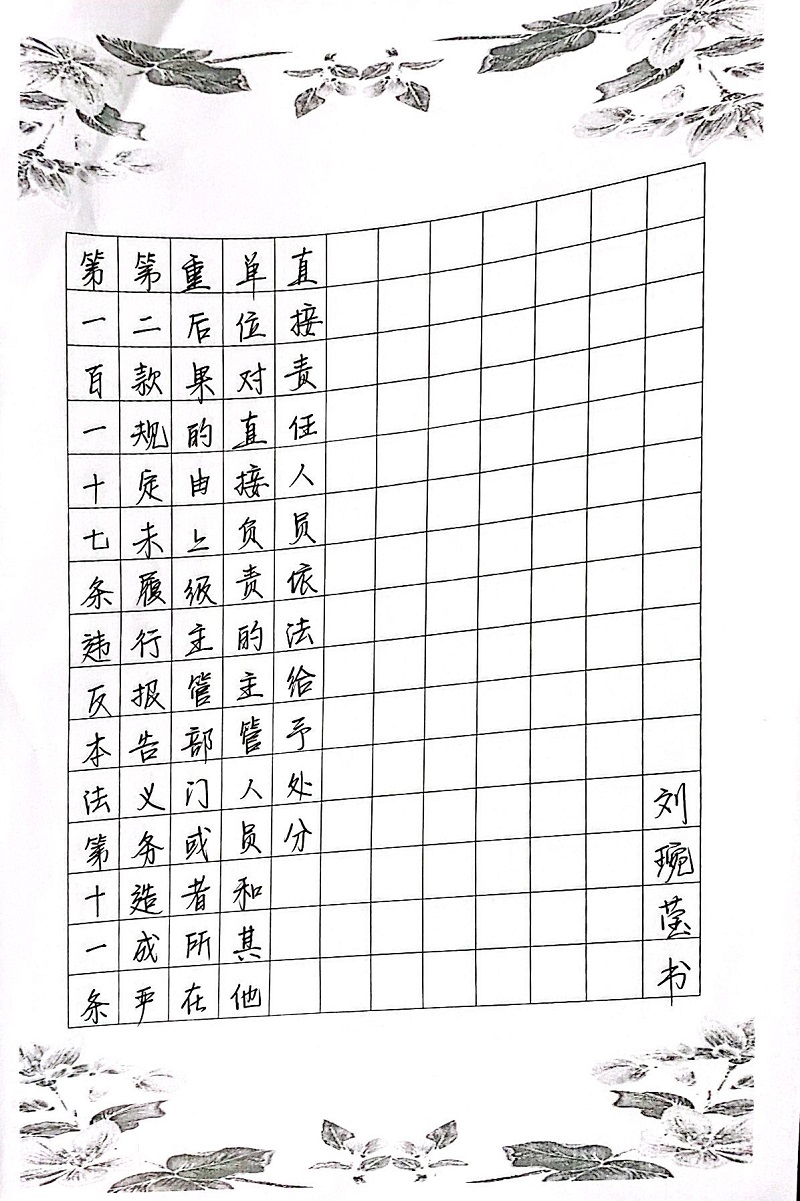 第一百一十七条违反本法第十一条
第二款规定未履行报告义务造成严
重后果的由上级主管部门或者所在
单位对直接负责的主管人员和其他
直接责任人员依法给予处分
刘琬莹书